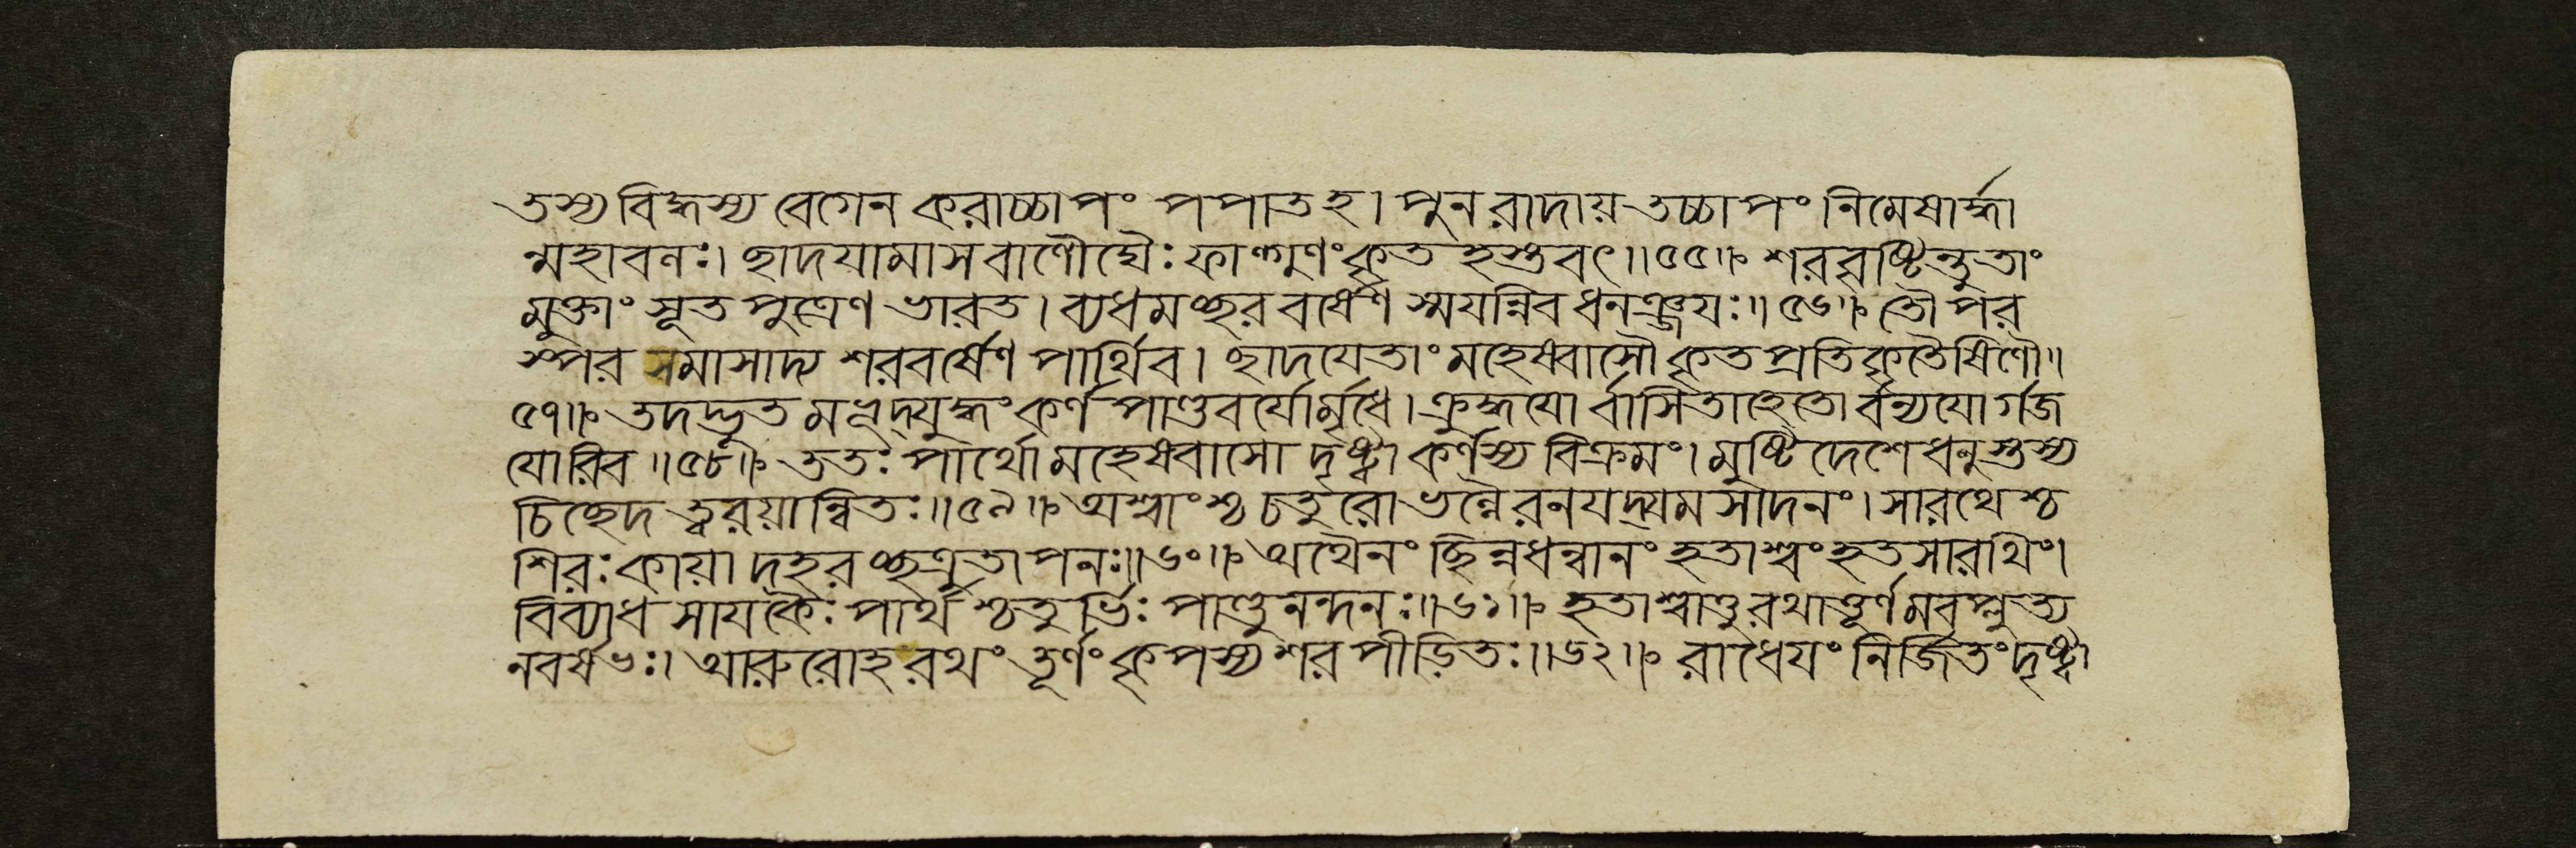 তস্য বিদ্ধস্য বেগেন করাচ্চাপং পপাত হ। পুনরাদায় তচ্চাপং নিমেষার্দ্ধা
ন্মহাবলঃ। ছাদয়ামাস বাণৌঘৈঃ ফাল্গুণং কৃতহস্তবৎ॥৫৫॥ শরবৃষ্টিন্তু তাং
মুক্তাং সূতপুত্রেণ ভারত। ব্যধমচ্ছরবর্ষেণ স্ময়ন্নিব ধনঞ্জয়ঃ॥৫৬॥ তৌ পর
স্পর সমাসাদ্য শরবর্ষেণ পার্থিব। ছাদয়েতাং মহেষ্বাসৌ কৃতপ্রতিকৃতৈষিণৌ॥
৫৭॥ তদদ্ভুতমভূদ্যুদ্ধং কর্ণপাণ্ডবয়োর্মৃধে। ক্রুদ্ধয়োর্বাসিতাহেতোর্বন্যয়োর্গজ
যোরিব॥৫৮॥ ততঃ পার্থো মহেষ্বাসো দৃষ্ট্বা কর্ণস্য বিক্রমং। মুষ্টিদেশে ধনুস্তস্য
চিচ্ছেদ ত্বরয়ান্বিতঃ॥৫৯॥ অশ্বাংশ্চ চতুরো ভল্লৈরনয়দ্যমসাদনং। সারথেশ্চ
শিরঃ কায়াদহরচ্ছত্রুতাপনঃ॥৬০॥ অথৈনং ছিন্নধন্বানং হতাশ্বং হতসারথিং।
বিব্যাধ সায়কৈঃ পার্থশ্চতুর্ভিঃ পাণ্ডুনন্দনঃ॥৬১॥ হতাশ্বাত্তু রথাত্তূর্ণমবপ্লুত্য
নরর্ষভঃ। আরুরোহ রথং তূর্ণং কৃপস্য শরপীড়িতঃ॥৬২॥ রাধেয়ং নির্জিতং দৃষ্ট্বা